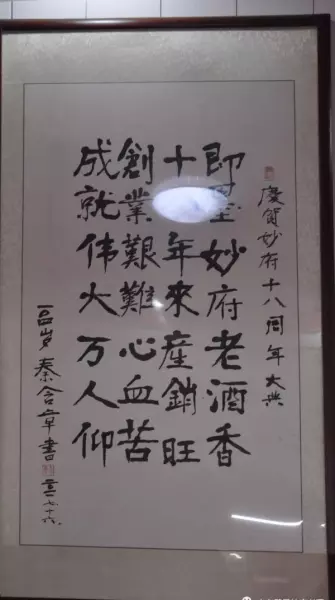 慶賀妙府十八周年大典
即墨妙府老酒香
十年來產銷旺
創業艱難心血苦
成就伟大万人仰
岁秦含章書